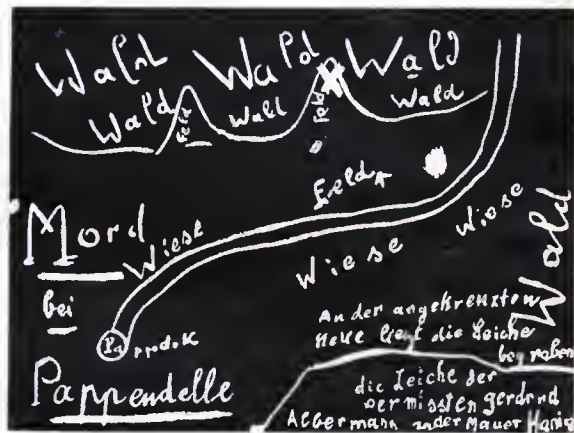 Wald Wald Wald
Wald Wald Wald
Feld Feld
Feld
Mord
Wiese
Wiese
Wiese
Wald
bei
Pappendelle
An der angekreuzten
Stelle liegt die Leiche
begraben
die Leiche der
vermissten gerdrud
Albermann an der Mauer Hanig